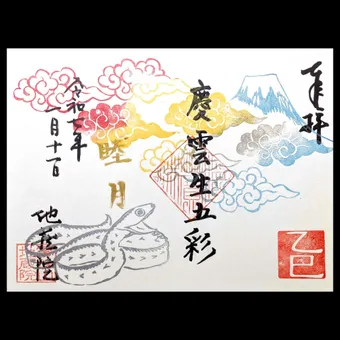 奉拝
慶雲生五彩
睦月
令和七年
一月十一日
地蔵院
乙巳
地蔵院